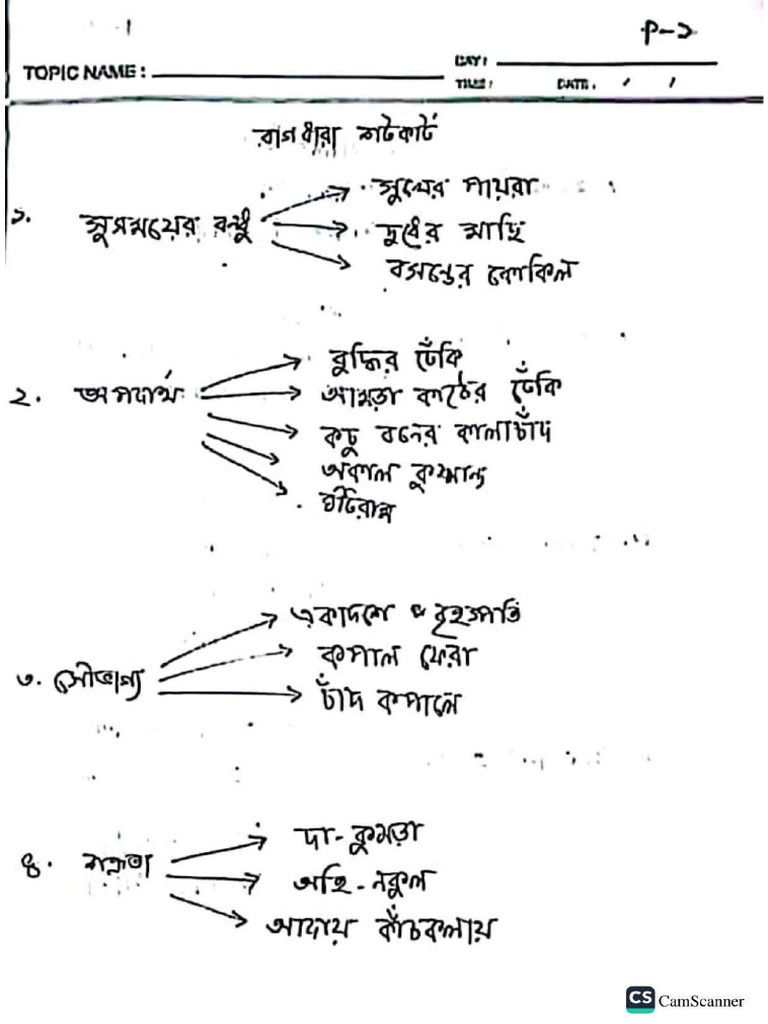 P-১
TOPIC NAME:
DAY:
TIME: DATE: / /
বাগধারা শর্টকার্ট
সুখের পায়রা
১. সুসময়ের বন্ধু
দুধের মাছি
বসন্তের কোকিল
বুদ্ধির ঢেঁকি
২. অপদার্থ
আমড়া কাঠের ঢেঁকি
কচু বনের কালাচাঁদ
অকাল কুষ্মান্ড
ঘটিরাম
একাদশে বৃহস্পতি
কপাল ফেরা
৩. সৌভাগ্য
চাঁদ কপালে
দা-কুমড়া
৪. শত্রুতা
অহি-নকুল
আদায় কাঁচকলায়
CS CamScanner